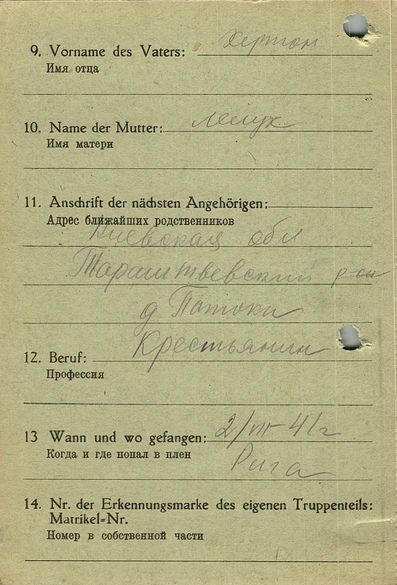 9. Vorname des Vaters: Хертон
Имя отца
10. Name der Mutter:
Имя матери
11. Anschrift der nächsten Angehörigen:
Адрес ближайших родственников
Киевская обл
р-он
д Патоки
12. Beruf: Крестьянин
Профессия
13 Wann und wo gefangen: 2/VII-41г
Когда и где попал в плен
Рига
14. Nr. der Erkennungsmarke des eigenen Truppenteils:
Matrikel-Nr.
Номер в собственной части